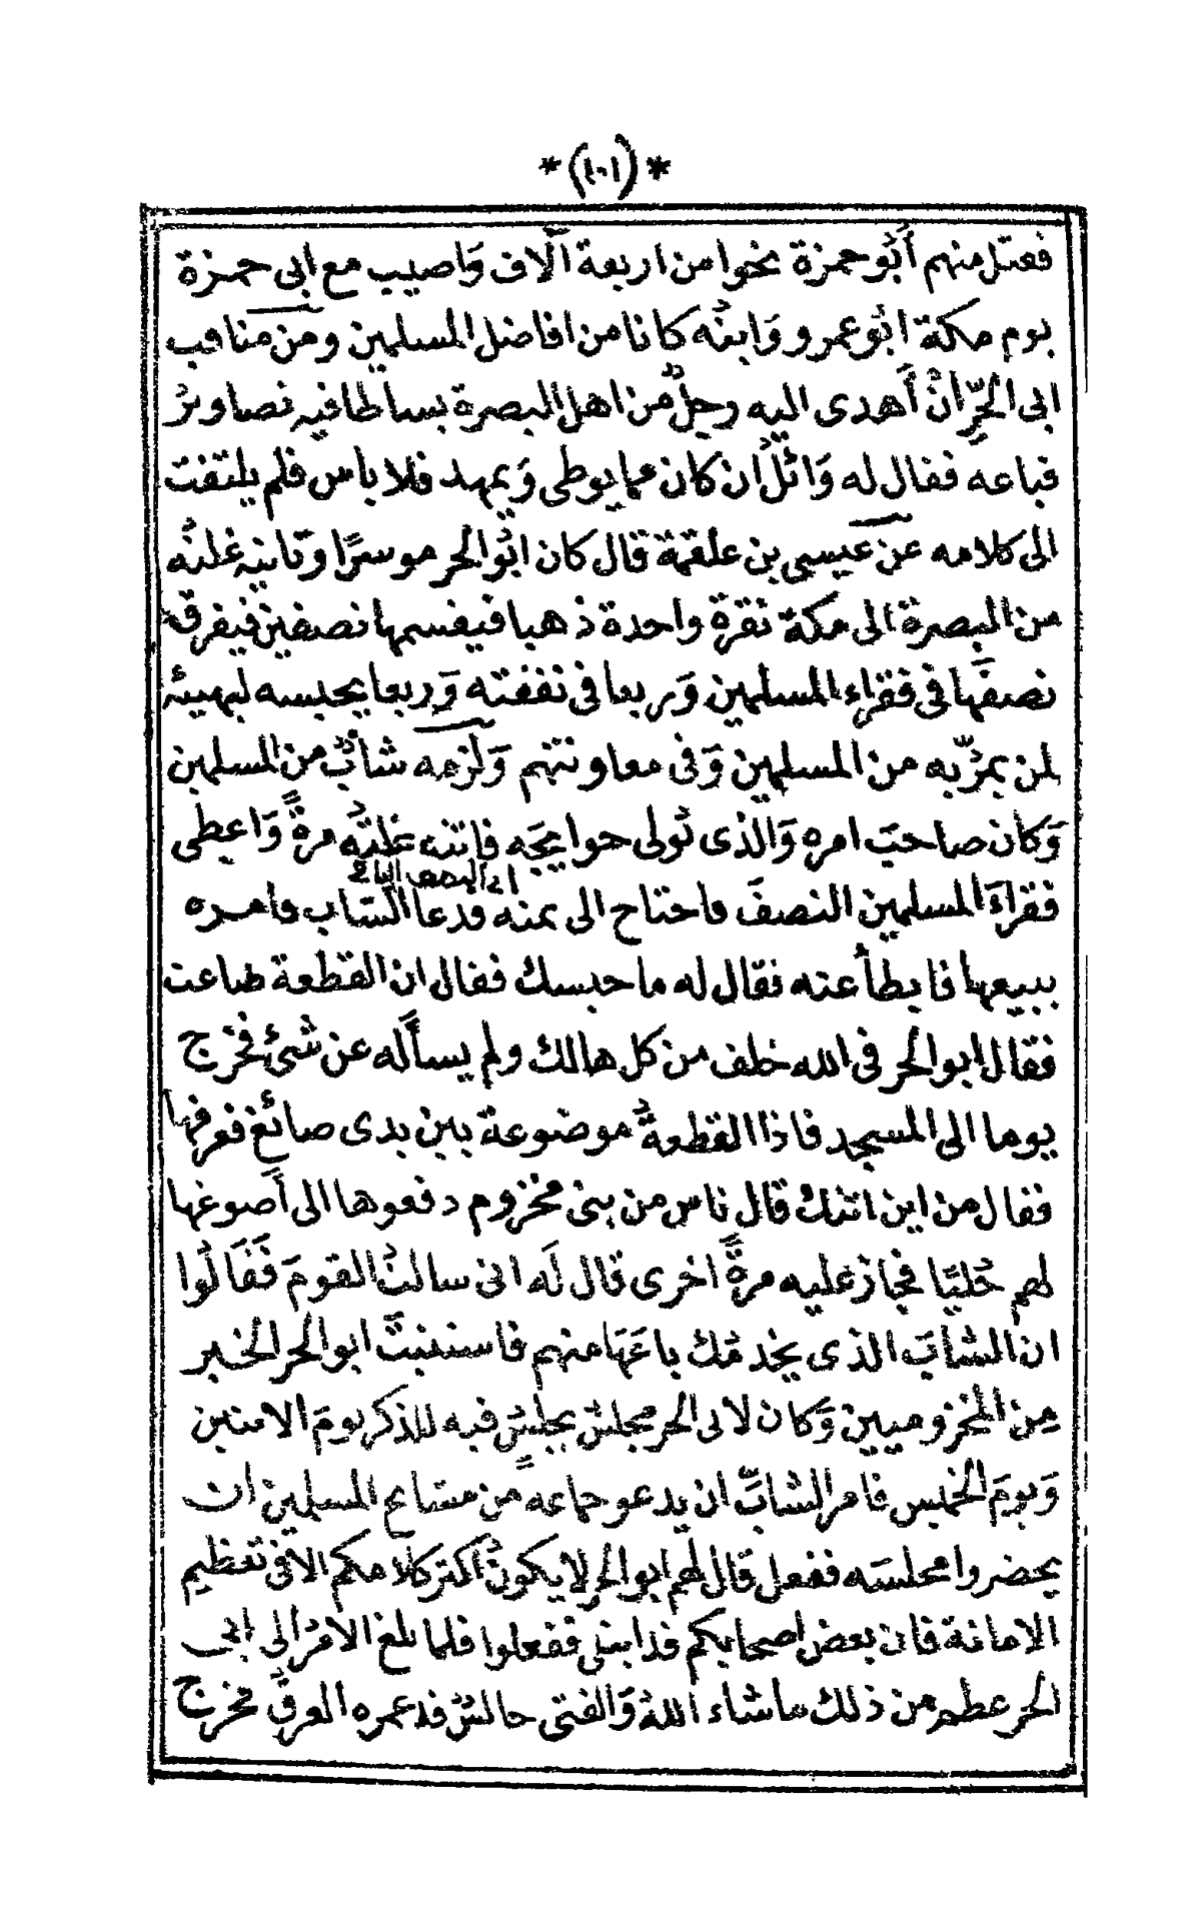 *(١٠١)*
فقتل منهم أَبُو حمزة نحوا من اربعة آلاف وَاصيب مع ابى حمزة
يوم مكة ابُو عمرو وَابنُه كانا من افاضل المسلمين ومن مناقب
ابى الحُرِّ انْ أَهدى اليه رجلٌ من اهل البصرة بساطا فيه تصاويرُ
فباعه فقال له وَائلُ ان كان مما يوطى وَيمهد فلا باس فلم يلتفت
الى كلامه عن عيسى بن علقمة قال كان ابُو الحر موسرًا وتاتيه غلتُه
من البصرة الى مكة نقرة واحدة ذهبا فيقسمها نصفين فيفرق
نصفَها فى فقراء المسلمين وَربعا فى نفقته وَربعا يحبسه لهيئة
لمن يمرّ به من المسلمين وَفى معاونتهم وَلزمه شابٌ من المسلمين
وَكان صاحبَ امره وَالذى تُولى حوايجَه فاتته غلتُه مرةً وَاعطى
اى النصف الباقى
فقراءَ المسلمين النصفَ فاحتاج الى ثمنه فدعا الشاب فامره
ببيعها فابطأ عنه فقال له ما حبسك فقال ان القطعة ضاعت
فقال ابو الحر فى الله خلف من كل هالك ولم يسأَله عن شئ فخرج
يوما الى المسجد فاذا القطعةُ موضوعة بين يدى صائغ فعرفها
فقال من اين اتتك قال ناس من بنى مخزوم دفعوها الى أصوغها
لهم حُليّا فجاز عليه مرةً اخرى قال لَه انى سالتُ القومَ فَقَالُوا
ان الشابَ الذى يخدمُك باعَهَا منهم فاستثبتَ ابو الحر الخبر
من المخزوميين وَكان لابى الحر مجلسٌ يجلسُ فيه للذكر يومَ الاثنين
وَيومَ الخميس فامر الشابَّ ان يدعو جماعةً من مشايخ المسلمين ان
يحضروا مجلسَه ففعل قال لهم ابو الحر لا يكونُ اكثر كلامكم الا فى تعظيم
الامانة فان بعض اصحابكم قد ابتلى ففعلوا فلما بلغ الامرُ الى ابى
الحر عظم من ذلك ما شاء اللهُ وَالفتى جالسٌ قد غمره العرقُ فخرج